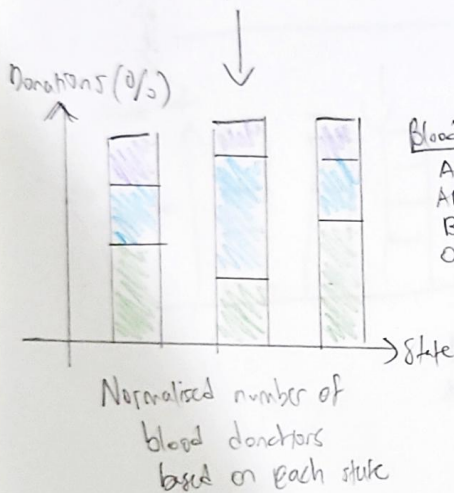 Donations (%)
Blood
A
B
O
State
Normalised number of
blood donations
based on each state